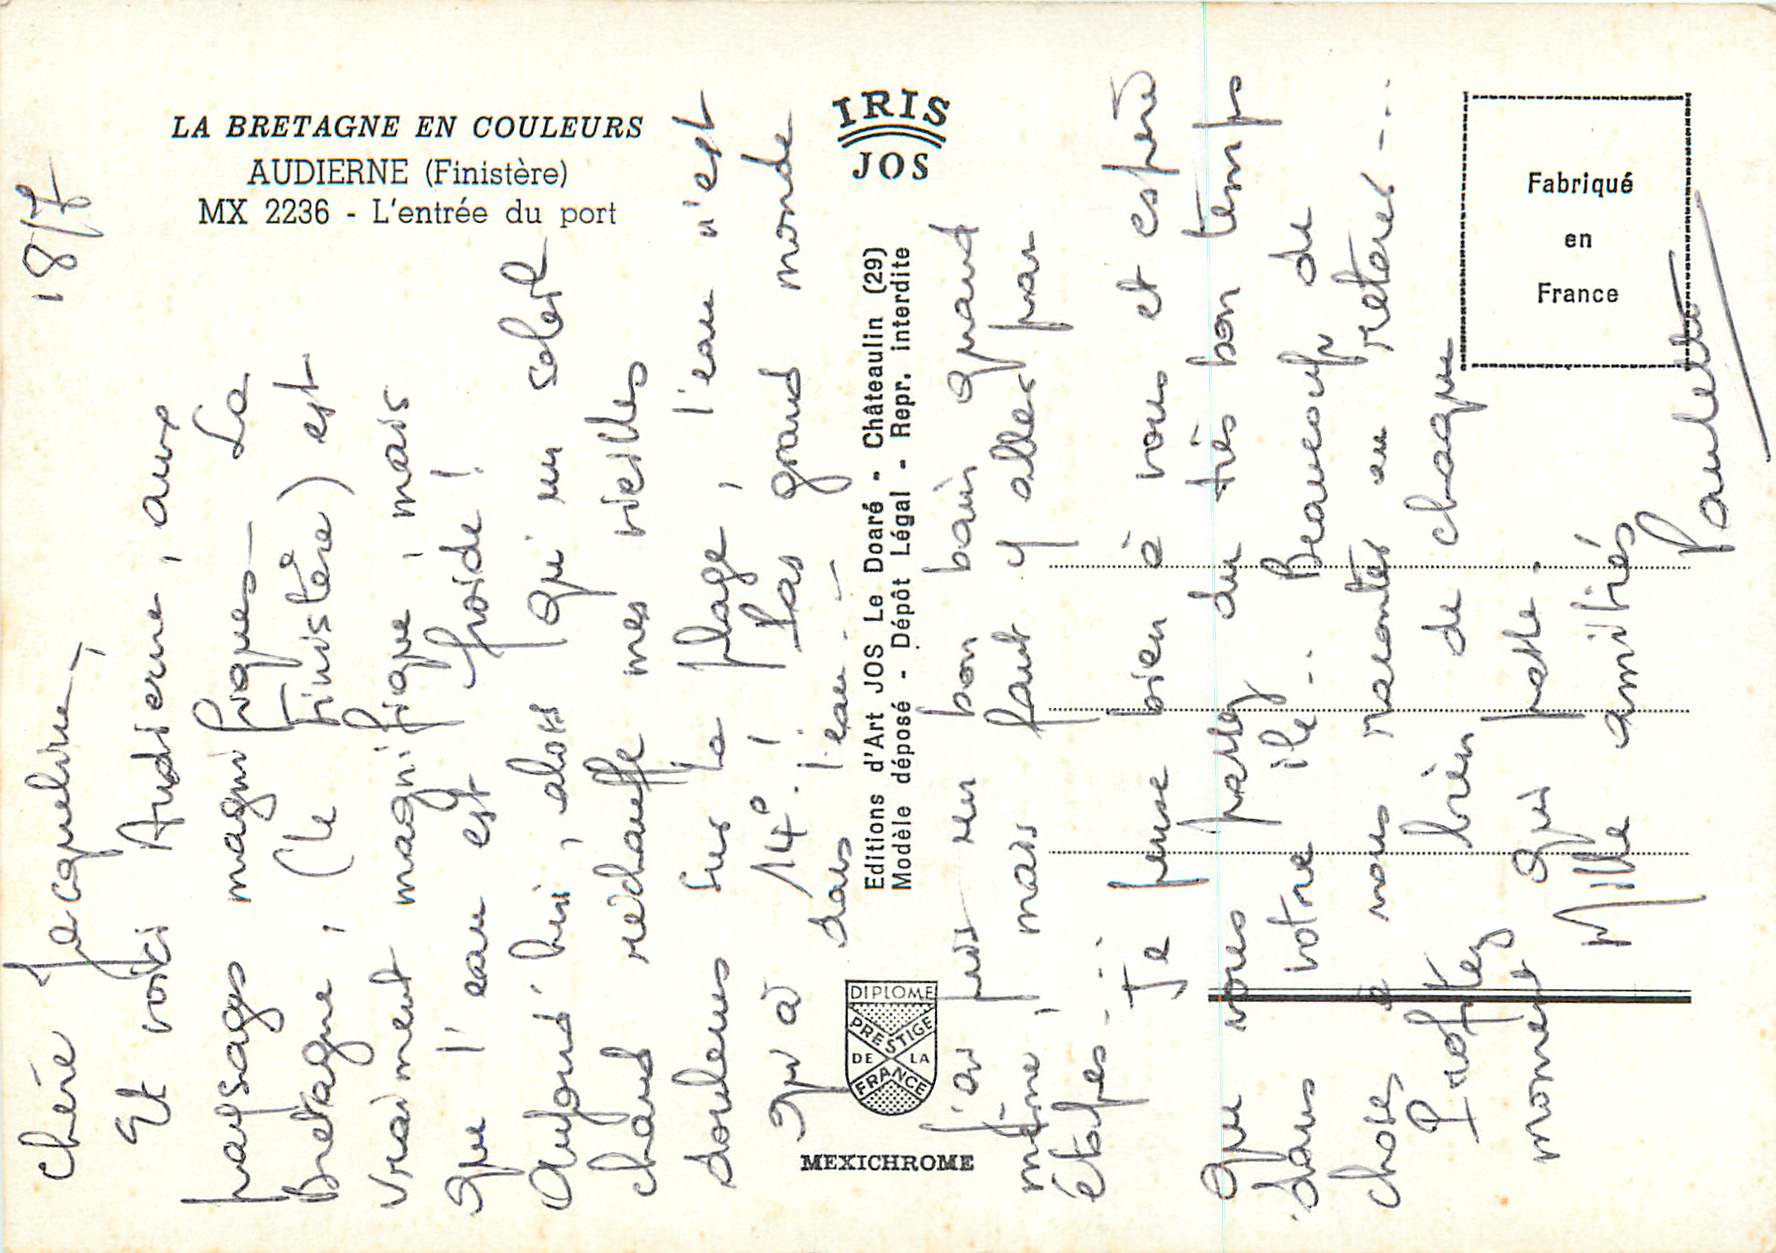 LA BRETAGNE EN COULEURS
AUDIERNE (Finistère)
MX 2236 - L'entrée du port
IRIS
JOS
Fabriqué
en
France
Editions d'Art JOS Le Doaré - Châteaulin (29)
Modèle déposé - Dépôt Légal - Repr. interdite
DIPLOME
PRESTIGE
DE LA
FRANCE
MEXICHROME
18/7
Chère Jacqueline,
Et voici Audierne, aux
paysages magnifiques - La
Bretagne, (le Finistère) est
vraiment magnifique, mais
que l'eau est froide !
Aujourd'hui, alors qu'un soleil
chaud réchauffe mes vieilles
douleurs sur la plage, l'eau n'est
qu'à 14° ! Pas grand monde
dans l'eau ---
J'ai pris un bon bain quand
même, mais faut y aller par
étapes...
Je pense bien à vous et espère
que vous passez du très bon temps
dans votre île... Beaucoup de
choses à nous raconter au retour...
Profitez bien de chaque
moment qui passe.
Mille amitiés
Paulette